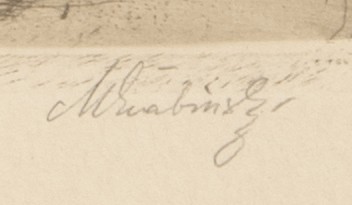 MŠvabinský